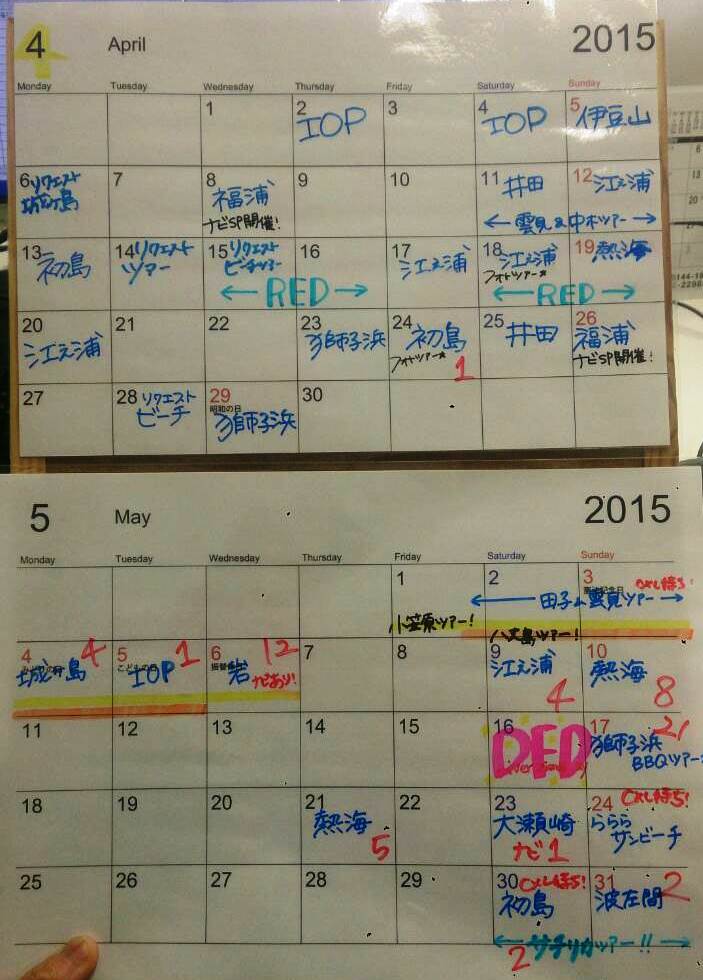 4 April 2015
Monday Tuesday Wednesday Thursday Friday Saturday Sunday
1 2 3 4 5
IOP IOP 伊豆山
6 7 8 9 10 11 12
リクエスト 城ヶ島 福浦 井田 江之浦
ナビSP開催! 雲見&中木ツアー
13 14 15 16 17 18 19
初島 リクエスト ツアー リクエスト ビーチツアー 江之浦 江之浦 熱海
フォトツアー
RED RED
20 21 22 23 24 25 26
江之浦 獅子浜 初島 井田 福浦
フォトツアー 1 ナビSP開催!
27 28 29 30
リクエスト ビーチ 昭和の日 獅子浜
5 May 2015
Monday Tuesday Wednesday Thursday Friday Saturday Sunday
1 2 3
憲法記念日 CXL待ち!
田子&雲見ツアー
小笠原ツアー! 八丈島ツアー!
4 5 6 7 8 9 10
みどりの日 4 こどもの日 1 振替休日 12
城ヶ島 IOP 岩 江之浦 熱海
ナビあり! 4 8
11 12 13 14 15 16 17
21
DED 獅子浜
BBQツアー
18 19 20 21 22 23 24
CXL待ち!
熱海 大瀬崎 らららサンビーチ
5 ナビ1
25 26 27 28 29 30 31
CXL待ち! 2
初島 波左間
2 サチリカツアー!!